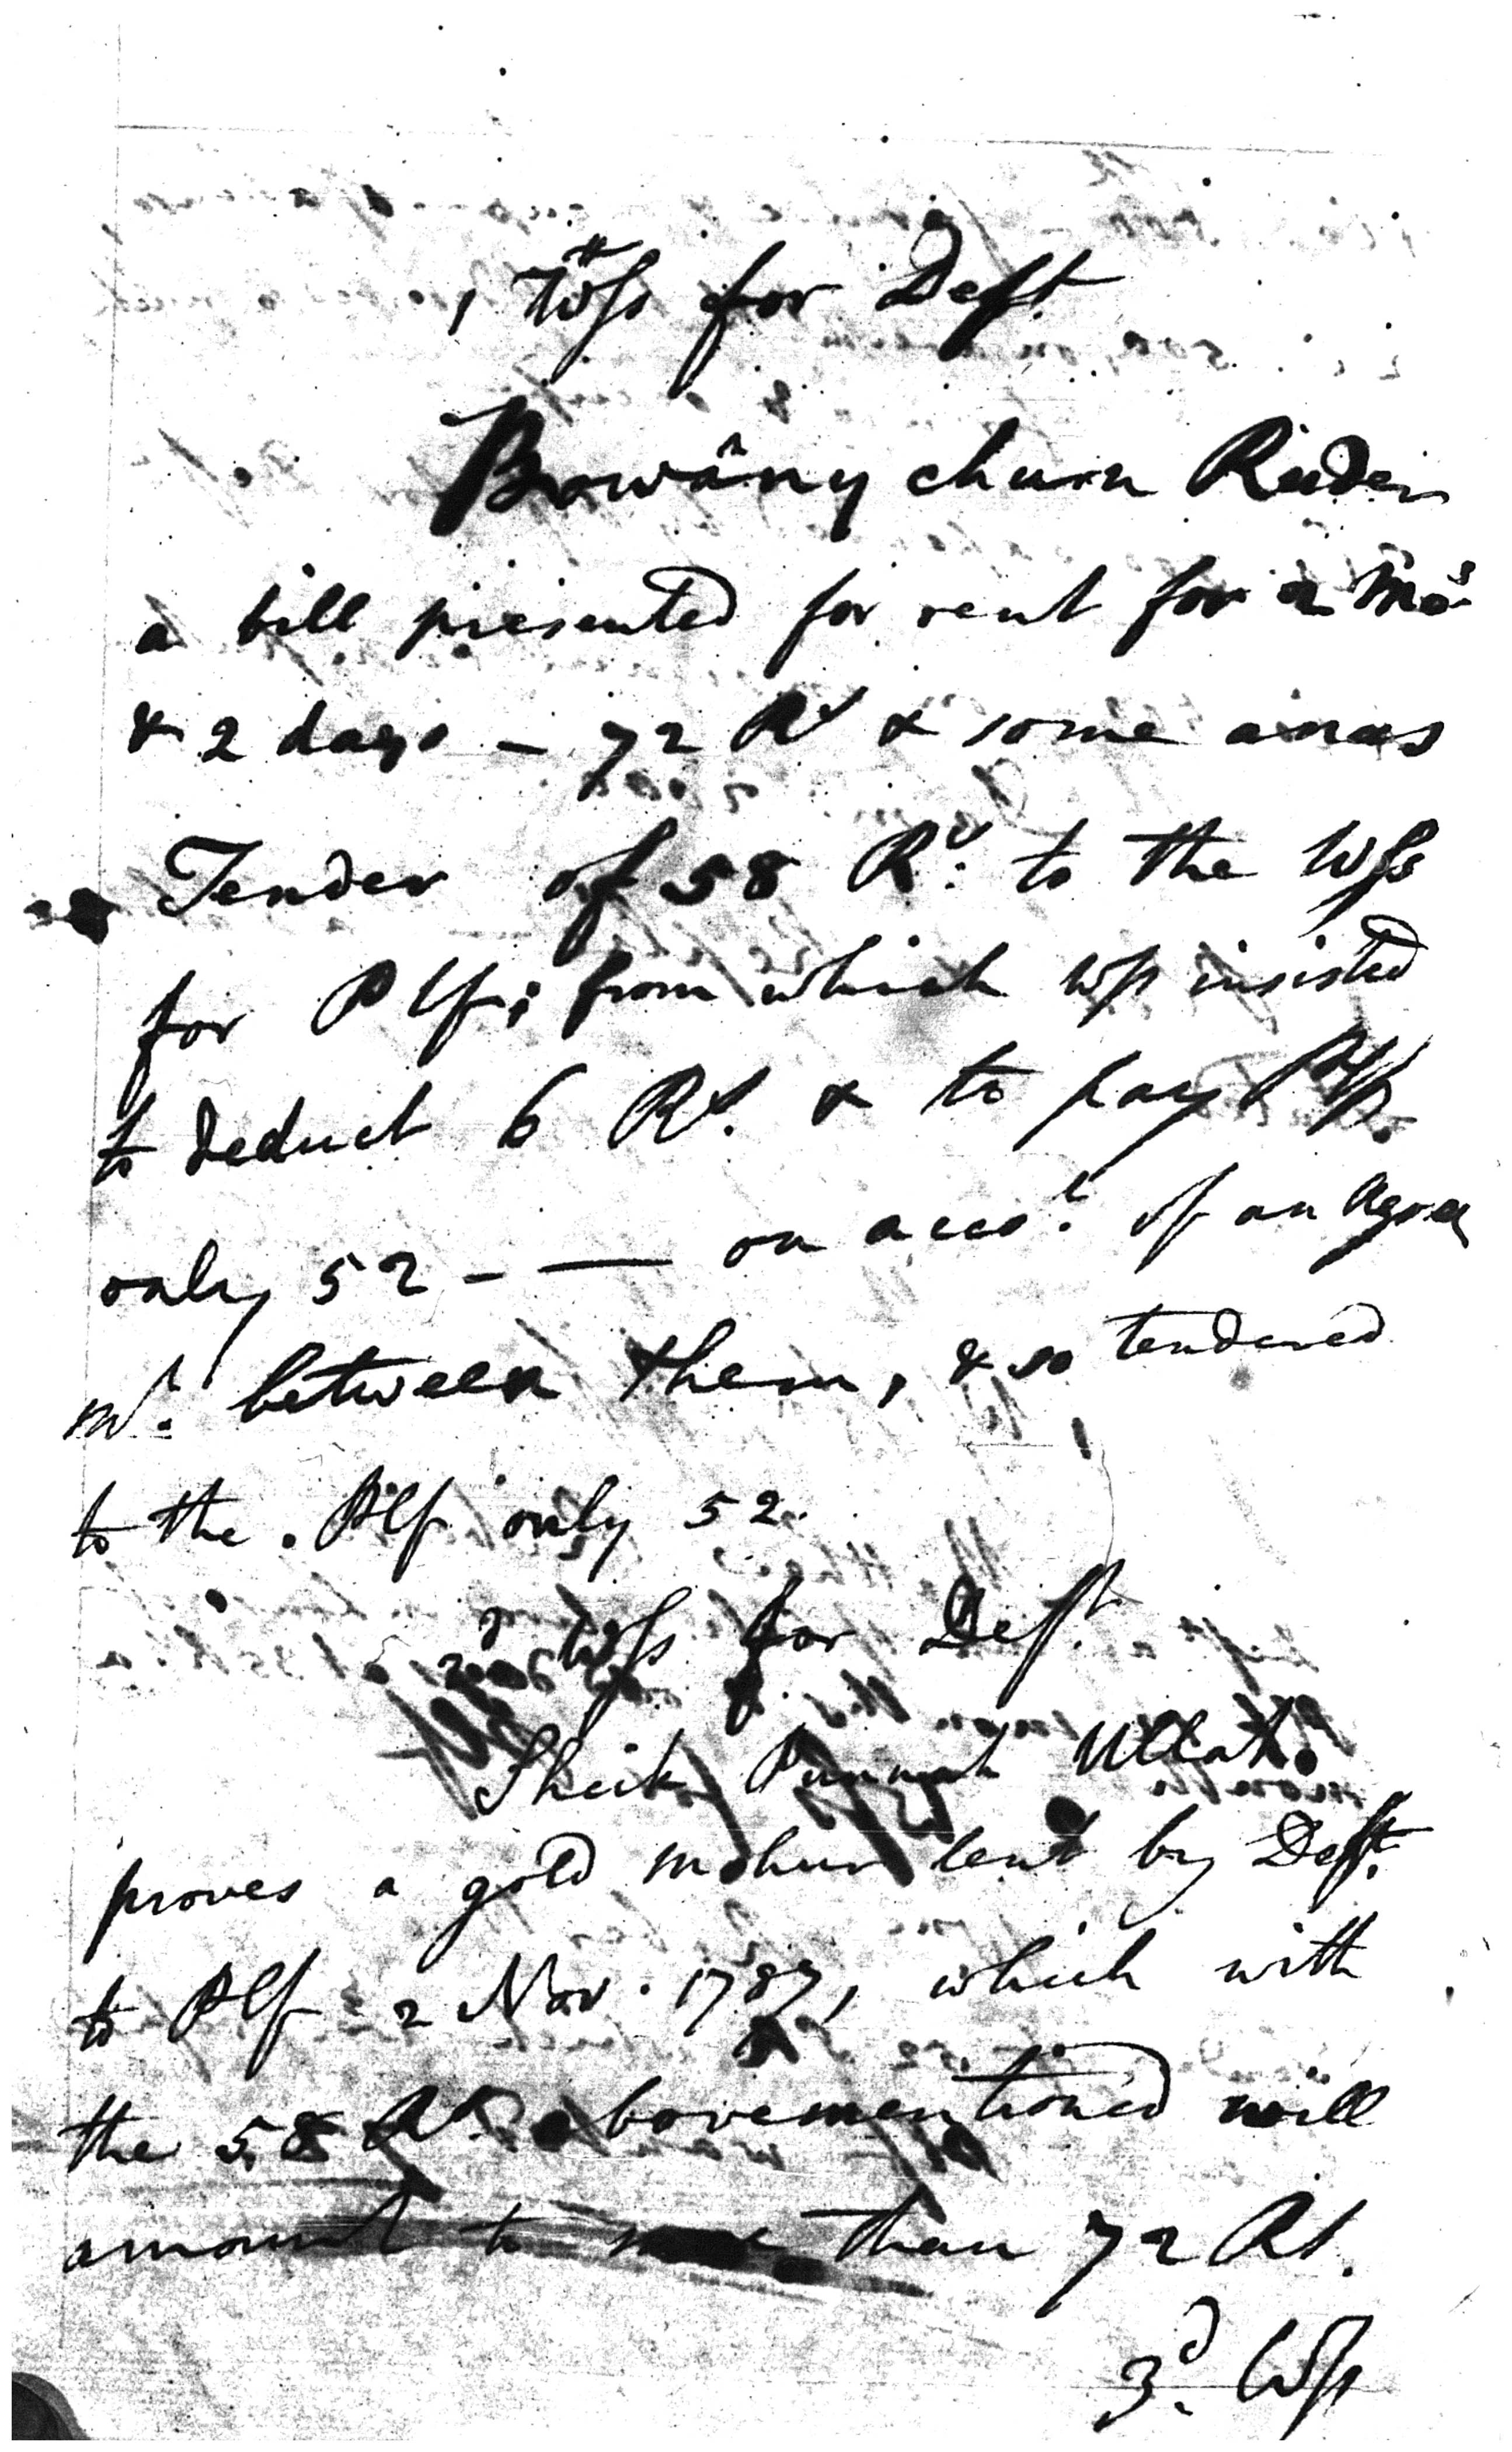 1 Wss for Deft.
Bowâny churn
a bill presented for rent for 2 Mos
& 2 days – 72 Rs & some anas
Tender of 58 Rs: to the Wss
for Plf; from which wss insisted
to deduct 6 Rs. & to pay Plf.
only 52 - — on acct. of an agree
mt. between them, & so tendered
to the Plf only 52.
2d Wss for Deft.
Sheik Punnah Ullah.
proves a gold mohur lent by Deft.
to Plf 2 Nov. 1787, which with
the 58 Rs. abovementioned will
amount to more than 72 Rs.
3d. Wss